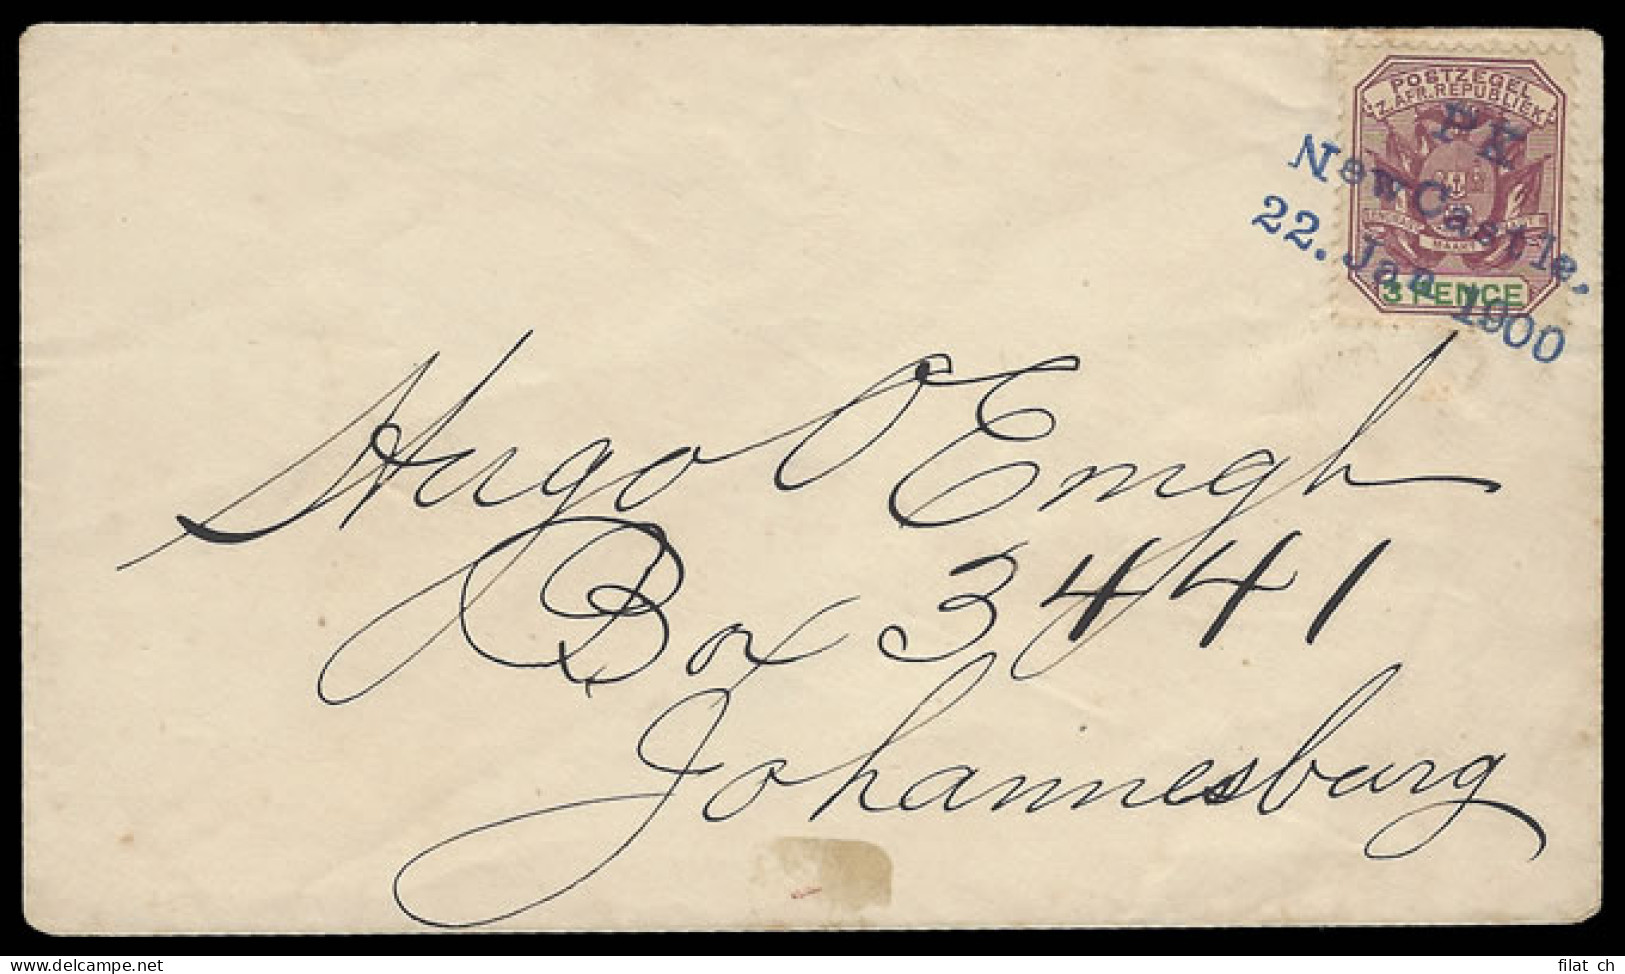 POSTZEGEL
Z.AFR.REPUBLIEK
MAAKT
3 PENCE
PK
NewCastle,
22. Jan 1900
Hugo O Emgh
Box 3441
Johannesburg
filat ch